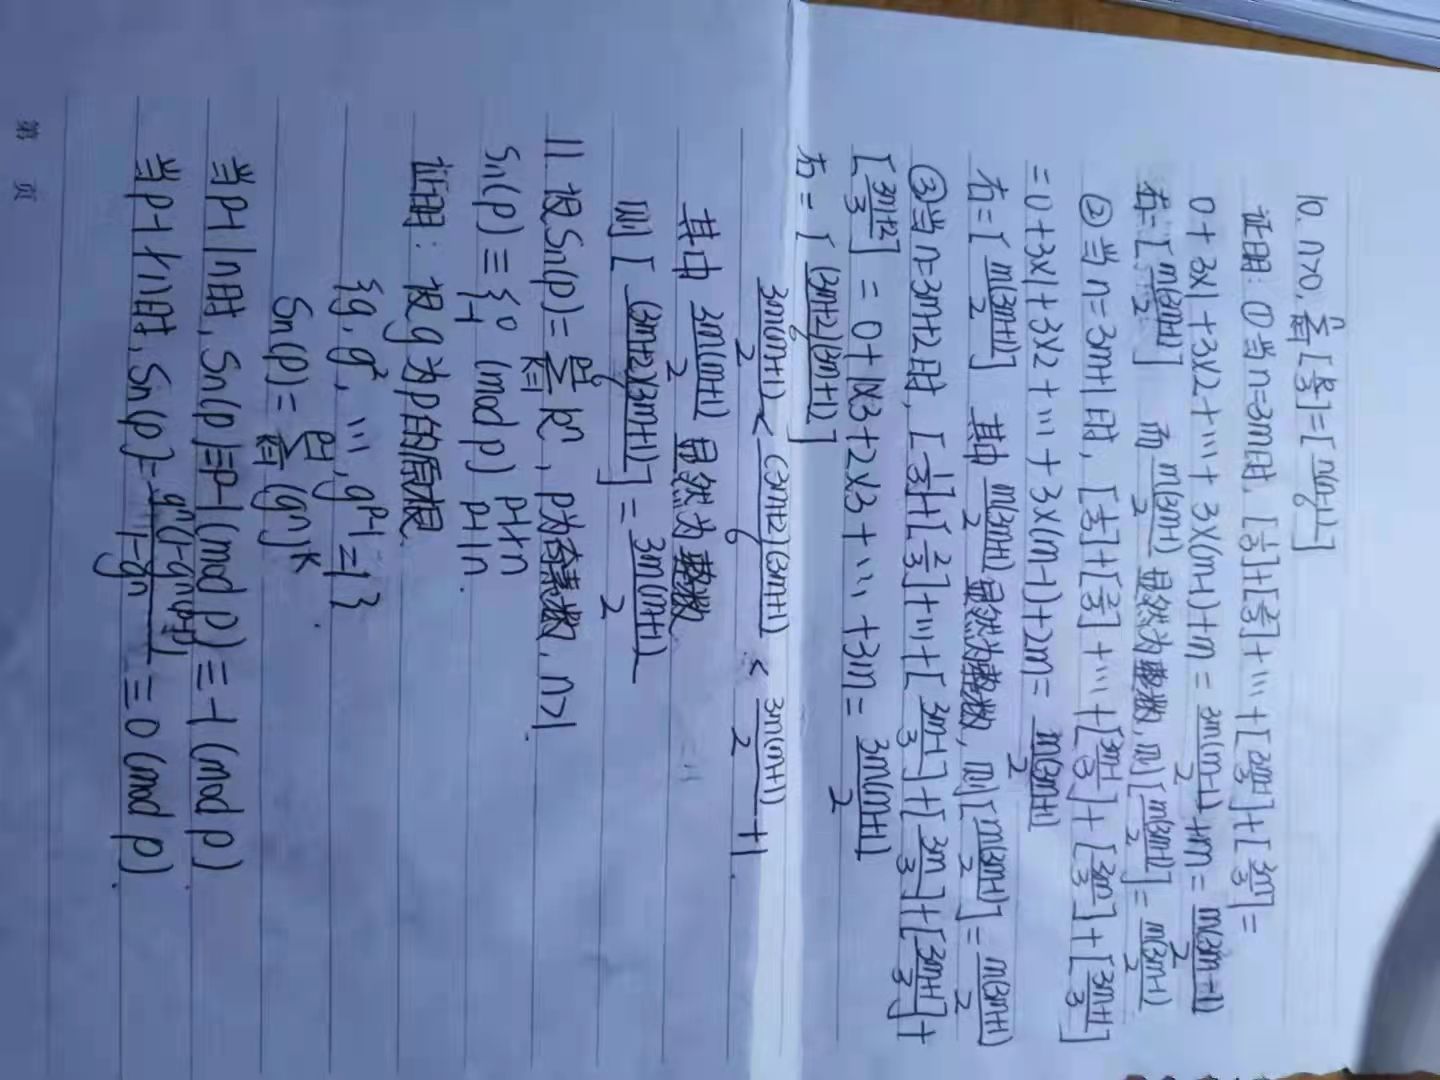 10. n>0, $\sum_{k=1}^{n}[\frac{k}{3}]=[\frac{n(n-1)}{6}]$
证明: ①当n=3m时, $[\frac{1}{3}]+[\frac{2}{3}]+\cdots+[\frac{3m-1}{3}]+[\frac{3m}{3}]=$
$0+3×1+3×2+\cdots+3×(m-1)+m=\frac{3m(m-1)}{2}+m=\frac{m(3m-1)}{2}$
右=$[\frac{m(3m-1)}{2}]$ 而$\frac{m(3m-1)}{2}$显然为整数, 则$[\frac{m(3m-1)}{2}]=\frac{m(3m-1)}{2}$
②当n=3m+1时, $[\frac{1}{3}]+[\frac{2}{3}]+\cdots+[\frac{3m-1}{3}]+[\frac{3m}{3}]+[\frac{3m+1}{3}]$
$=0+3×1+3×2+\cdots+3×(m-1)+2m=\frac{m(3m+1)}{2}$
右=$[\frac{m(3m+1)}{2}]$ 其中$\frac{m(3m+1)}{2}$显然为整数, 则$[\frac{m(3m+1)}{2}]=\frac{m(3m+1)}{2}$
③当n=3m+2时, $[\frac{1}{3}]+[\frac{2}{3}]+\cdots+[\frac{3m-1}{3}]+[\frac{3m}{3}]+[\frac{3m+1}{3}]+$
$[\frac{3m+2}{3}]=0+1×3+2×3+\cdots+3m=\frac{3m(m+1)}{2}$
右=$[\frac{(3m+2)(3m+1)}{6}]$
$\frac{3m(m+1)}{2}<\frac{(3m+2)(3m+1)}{6}<\frac{3m(m+1)}{2}+1.$
其中$\frac{3m(m+1)}{2}$显然为整数
则$[\frac{(3m+2)(3m+1)}{6}]=\frac{3m(m+1)}{2}$
11. 设$S_n(p)=\sum_{k=1}^{p-1}k^n$, p为奇素数, n>1.
$S_n(p)≡\{^{0}_{-1}$ (mod p) p-1∤n p-1|n.
证明: 设g为p的原根.
{g, g², ⋯, $g^{p-1}=1$}.
$S_n(p)=\sum_{k=1}^{p-1}(g^n)^k$
当p-1|n时, $S_n(p)≡p-1$(mod p)≡-1(mod p).
当p-1∤n时, $S_n(p)=\frac{g^n(1-g^{n(p-1)})}{1-g^n}≡0$(mod p).
第 页